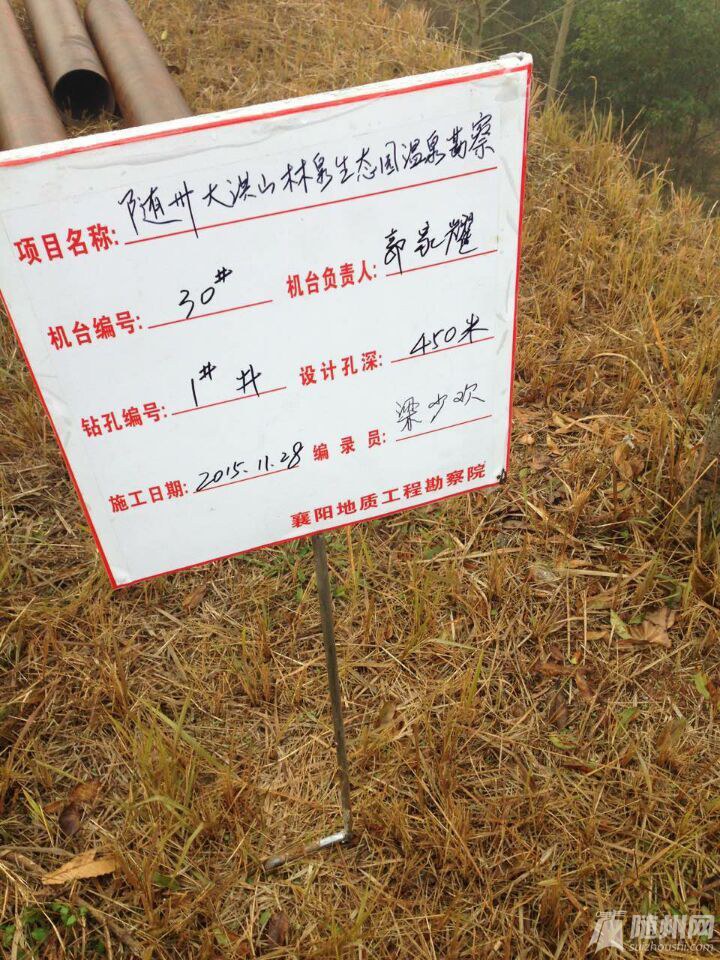 项目名称:随州大洪山林泉生态园温泉勘察
机台编号:30# 机台负责人:郭家耀
钻孔编号:1#井 设计孔深:450米
施工日期:2015.11.28 编录员:梁少欢
襄阳地质工程勘察院
随州网
suizhoushi.com